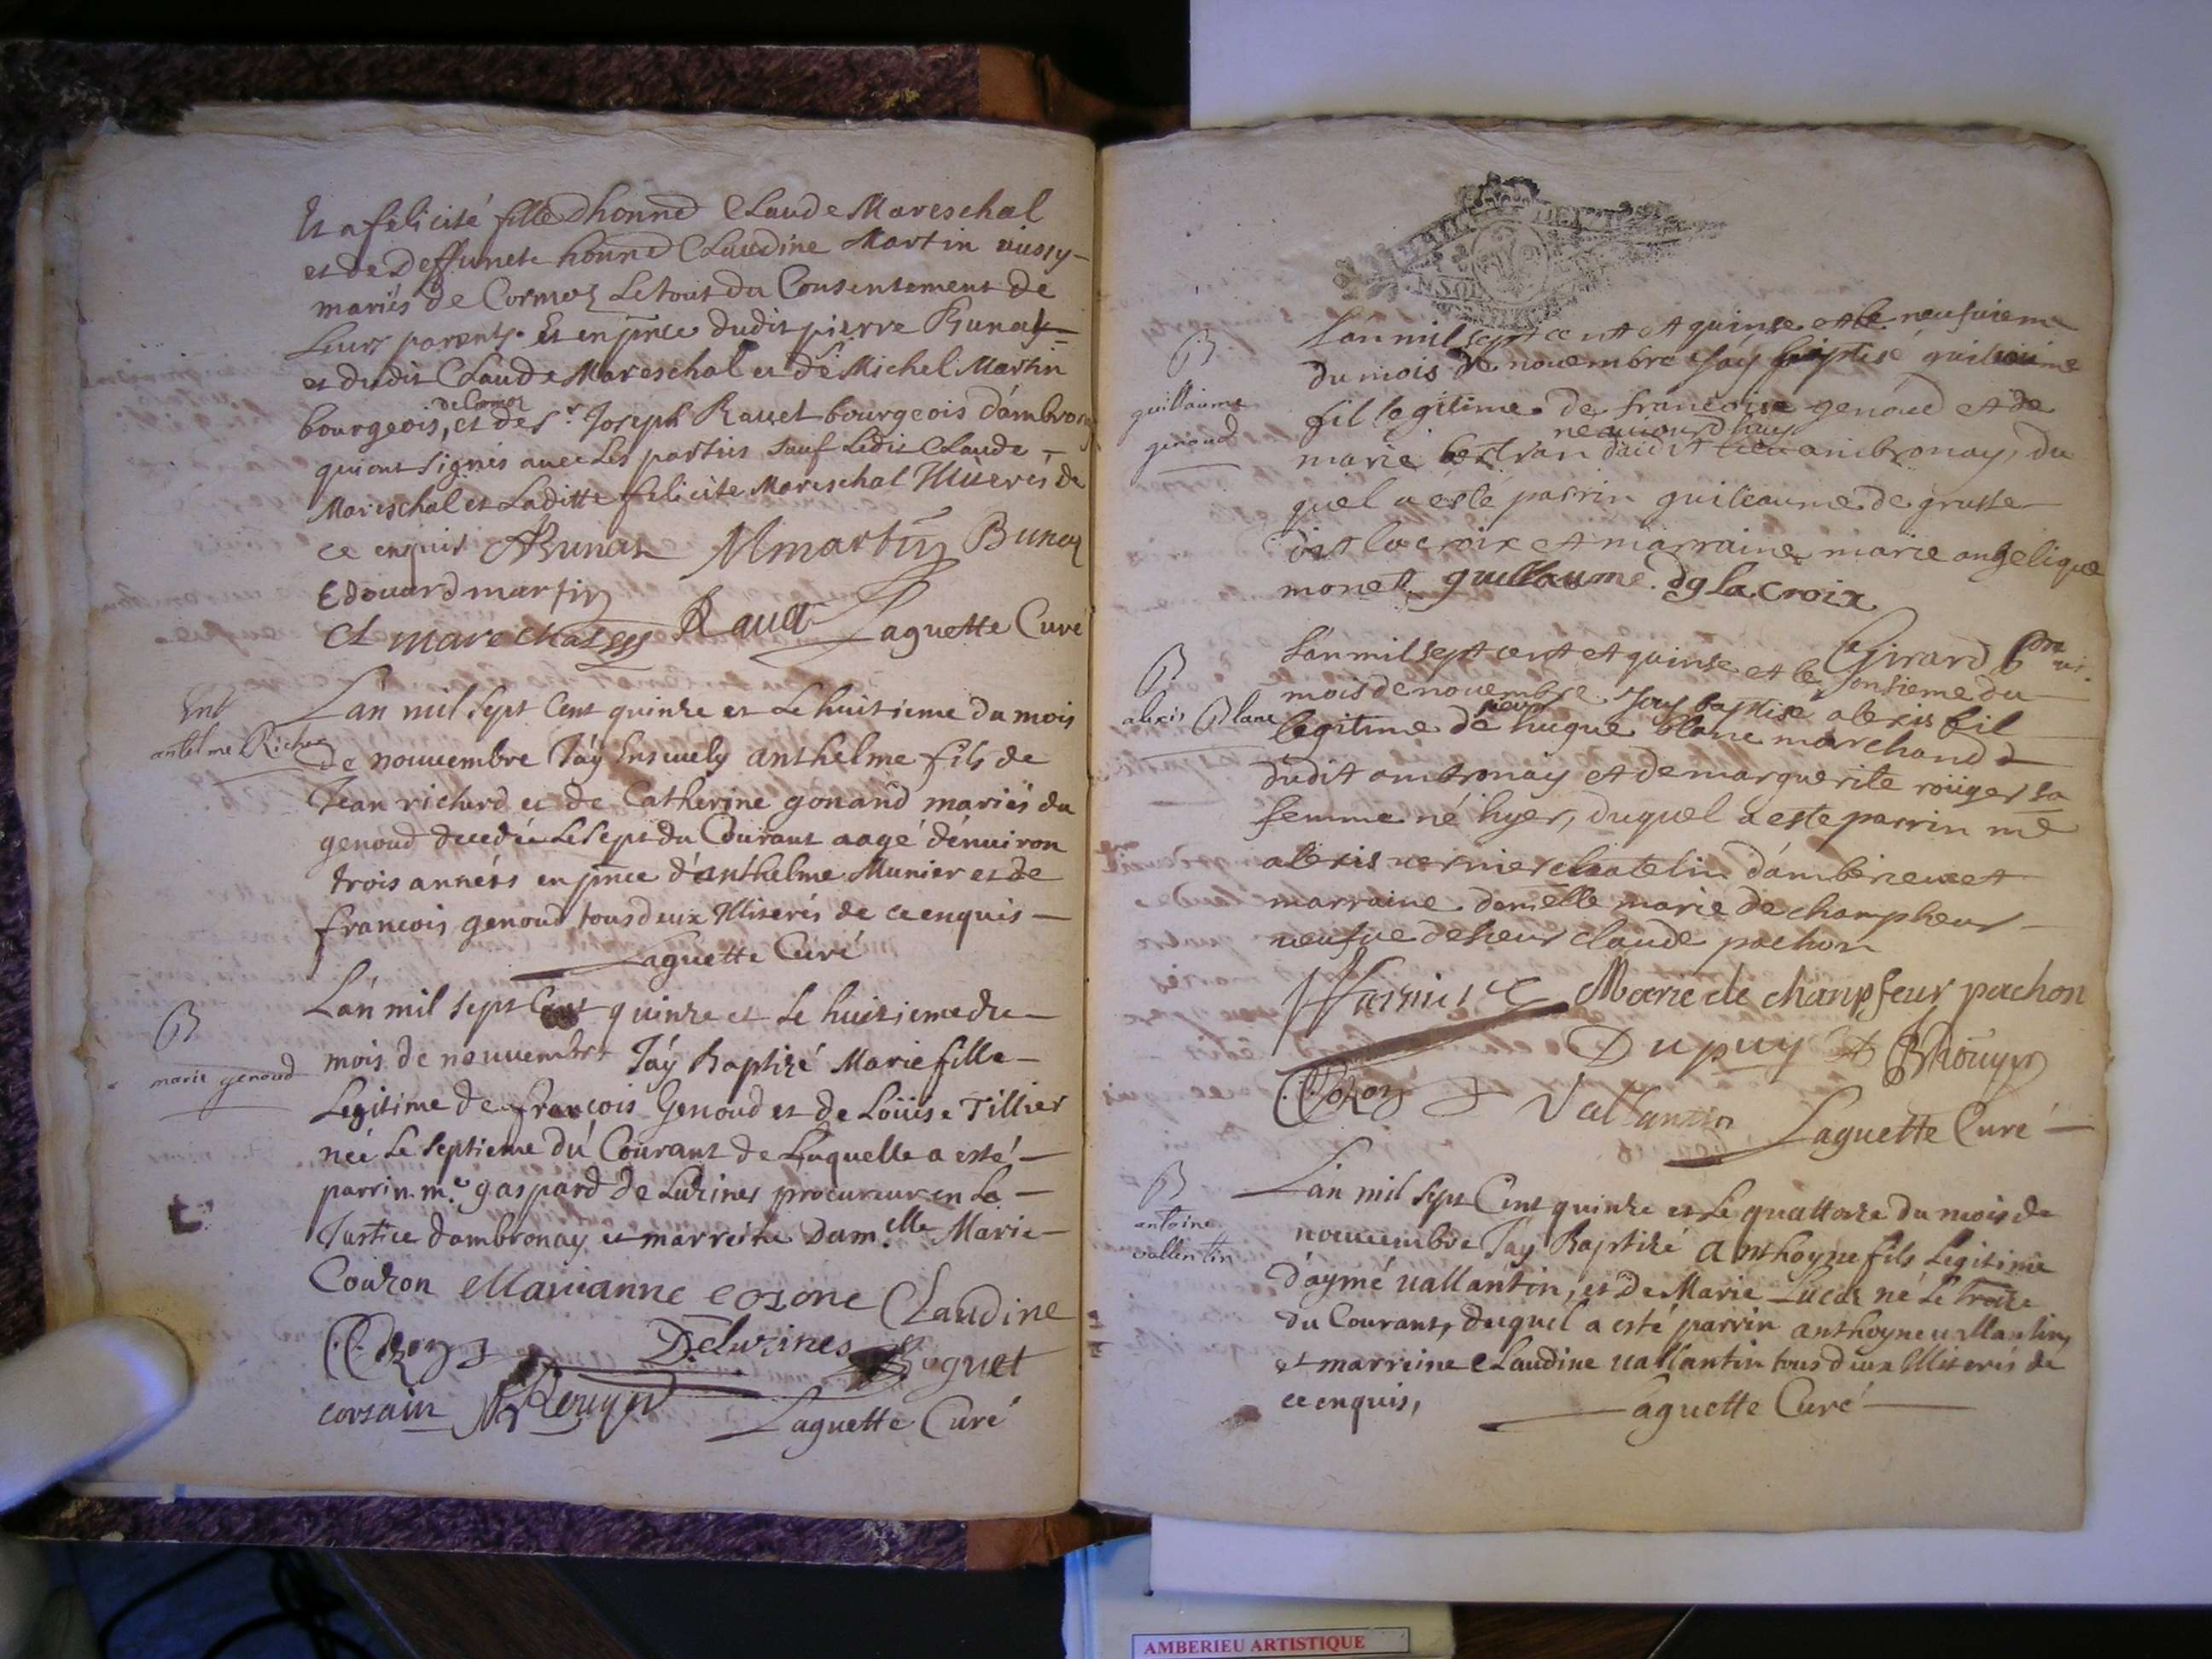 Et a félicité fille d'honne Claude Mareschal
et de Deffuncte honne Claudine Martin aussy
mariés de Cormoz Le tout du Consentement de
Leurs parents. Et en pnce dudit pierre Bunaz
et dudit Claude Mareschal et de Sr Michel Martin
bourgeois, de Cormoz et de Sr Joseph Ravet bourgeois d'ambronay
qui ont signés avec Les parties sauf Ledit Claude
Mareschal et Laditte felicite Mareschal Illiterés de
ce enquis Bunaz Mmartin Bunaz
Edouard martin
Cl marechal Ravet Laguette Curé
Ent
antelme Richer
L'an mil sept Cent quinze et Le huitieme du mois
de nouvembre J'ay Ensevely anthelme fils de
Jean richerd et de Catherine gonand mariés du
genoud decedée Le sept du Courant aagé d'enuiron
trois années en pnce d'anthelme Munier et de
francois genoud tous deux Illiterés de ce enquis
Laguette Curé
B
marie genoud
L'an mil sept Cent quinze et Le huitieme du
mois de nouuembre J'ay Baptizé Marie fille
Legitime de françois Genoud et de Loüise Tillier
née Le septieme du Courant de Laquelle a esté
parrin me gaspard de Luzines procureur en La
Justice d'ambronay et marreine Damlle Marie
Couzon Marianne cozone Claudine
Cozon Deluzines Seguet
corsain Rouyer Laguette Curé
B
guillaume
genoud
L'an mil sept cent et quinse et le neufuieme
du mois de nouembre J'ay baptisé guilioume
fil legitime de francoise genoud et de
ne aujourd'huy
marie bertran dudit lieu ambronay, du
quel a esté parrin guileaume de grusse
dit la croix et marraine marie angelique
monet guillaume dg la croix
Girard
B
alexis Blanc
L'an mil sept cent et quinse et le onsieme du
mois de nouembre J'ay baptise alexis fil
legitime de sieur hugue blanc marchand
dudit ambronay et de marguerite roüyer sa
femme né hyer, duquel a este parrin me
alexis vernier chatelin d'amberieu et
marraine damelle marie de champheur
veufue de sieur claude pochon
Varnier Marie de chanpfeur pachon
Dupuy Rouyer
Cozon Vallantin Laguette Curé
B
antoine
vallentin
L'an mil sept Cent quinze et Le quattorze du mois de
nouuembre J'ay Baptizé anthoyne fils Legitime
d'aymé vallantin, et De Marie Lucaz né Le treize
du Courant, duquel a esté parrin anthoyne vallantin,
et marreine Claudine vallantin tous deux Illiterés de
ce enquis, Laguette Curé
AMBERIEU ARTISTIQUE